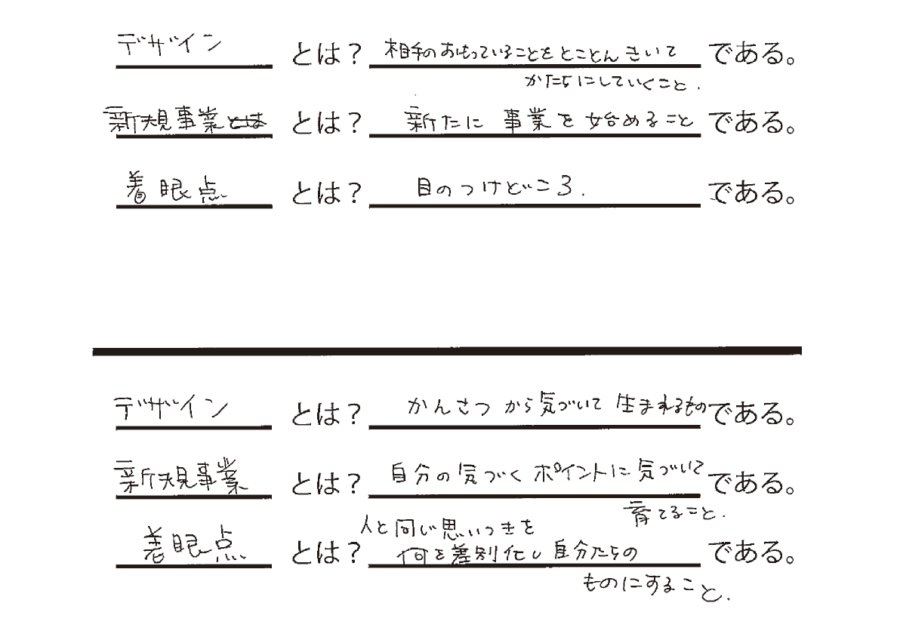 デザイン とは? 相手のおもっていることをとことんきいて である。
かたちにしていくこと.
新規事業とは とは? 新たに 事業を始めること である。
着眼点 とは? 目のつけどころ. である。
デザイン とは? かんさつから気づいて生まれるもの である。
新規事業 とは? 自分の気づくポイントに気づいて である。
育てること.
人と同じ思いつきを
着眼点 とは? 何を差別化し自分たちの である。
ものにすること.